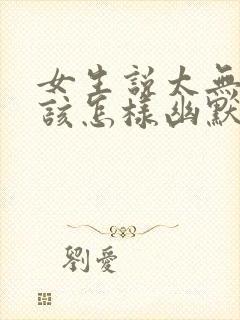 女生説太無
該怎樣幽默
劉愛